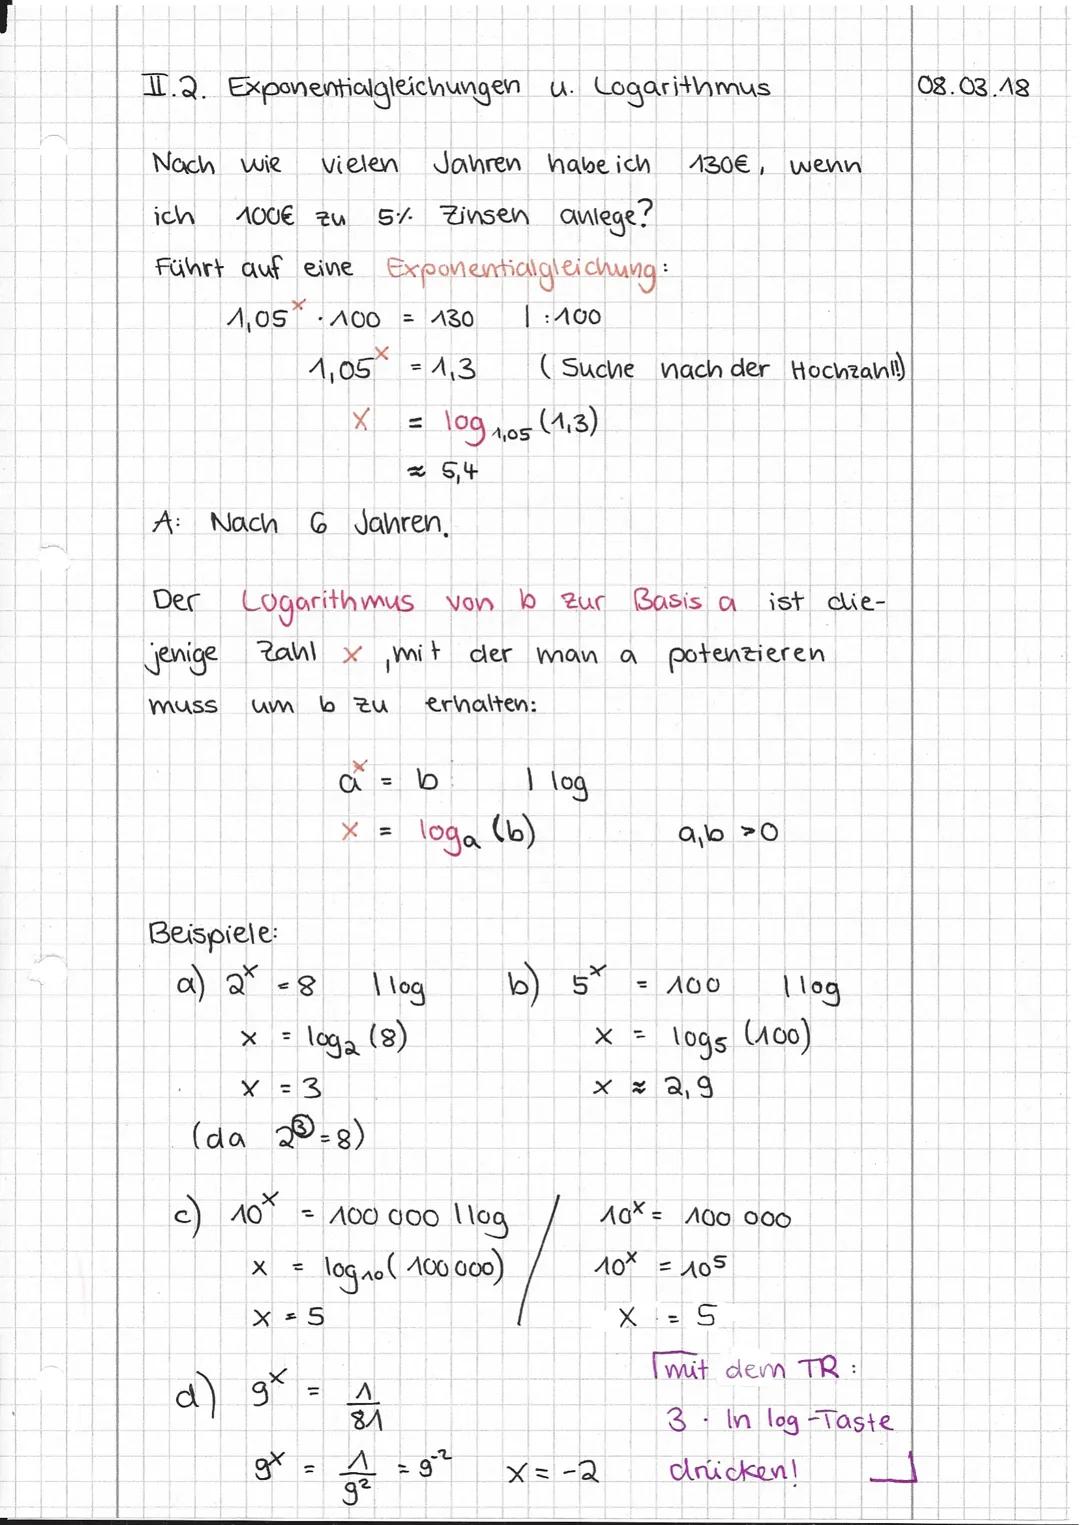 II.2. Exponentialgleichungen u. Logarithmus 08.03.18
Nach wie vielen Jahren habe ich 130€, wenn
ich 100€ zu 5% Zinsen anlege?
Führt auf eine Exponentialgleichung:
1,05^x · 100 = 130 | :100
1,05^x = 1,3 (Suche nach der Hochzahl!!)
x = log₁,₀₅ (1,3)
≈ 5,4
A: Nach 6 Jahren.
Der Logarithmus von b zur Basis a ist die-
jenige Zahl x, mit der man a potenzieren
muss um b zu erhalten:
a^x = b | log
x = logₐ (b) a,b > 0
Beispiele:
a) 2^x = 8 | log b) 5^x = 100 | log
x = log₂ (8) x = log₅ (100)
x = 3 x ≈ 2,9
(da 2³ = 8)
c) 10^x = 100 000 | log / 10^x = 100 000
x = log₁₀ (100 000) 10^x = 10⁵
x = 5 x = 5
d) 9^x = 1/81
9^x = 1/9² = 9⁻² x = -2
mit dem TR:
3 · In log-Taste
drücken!